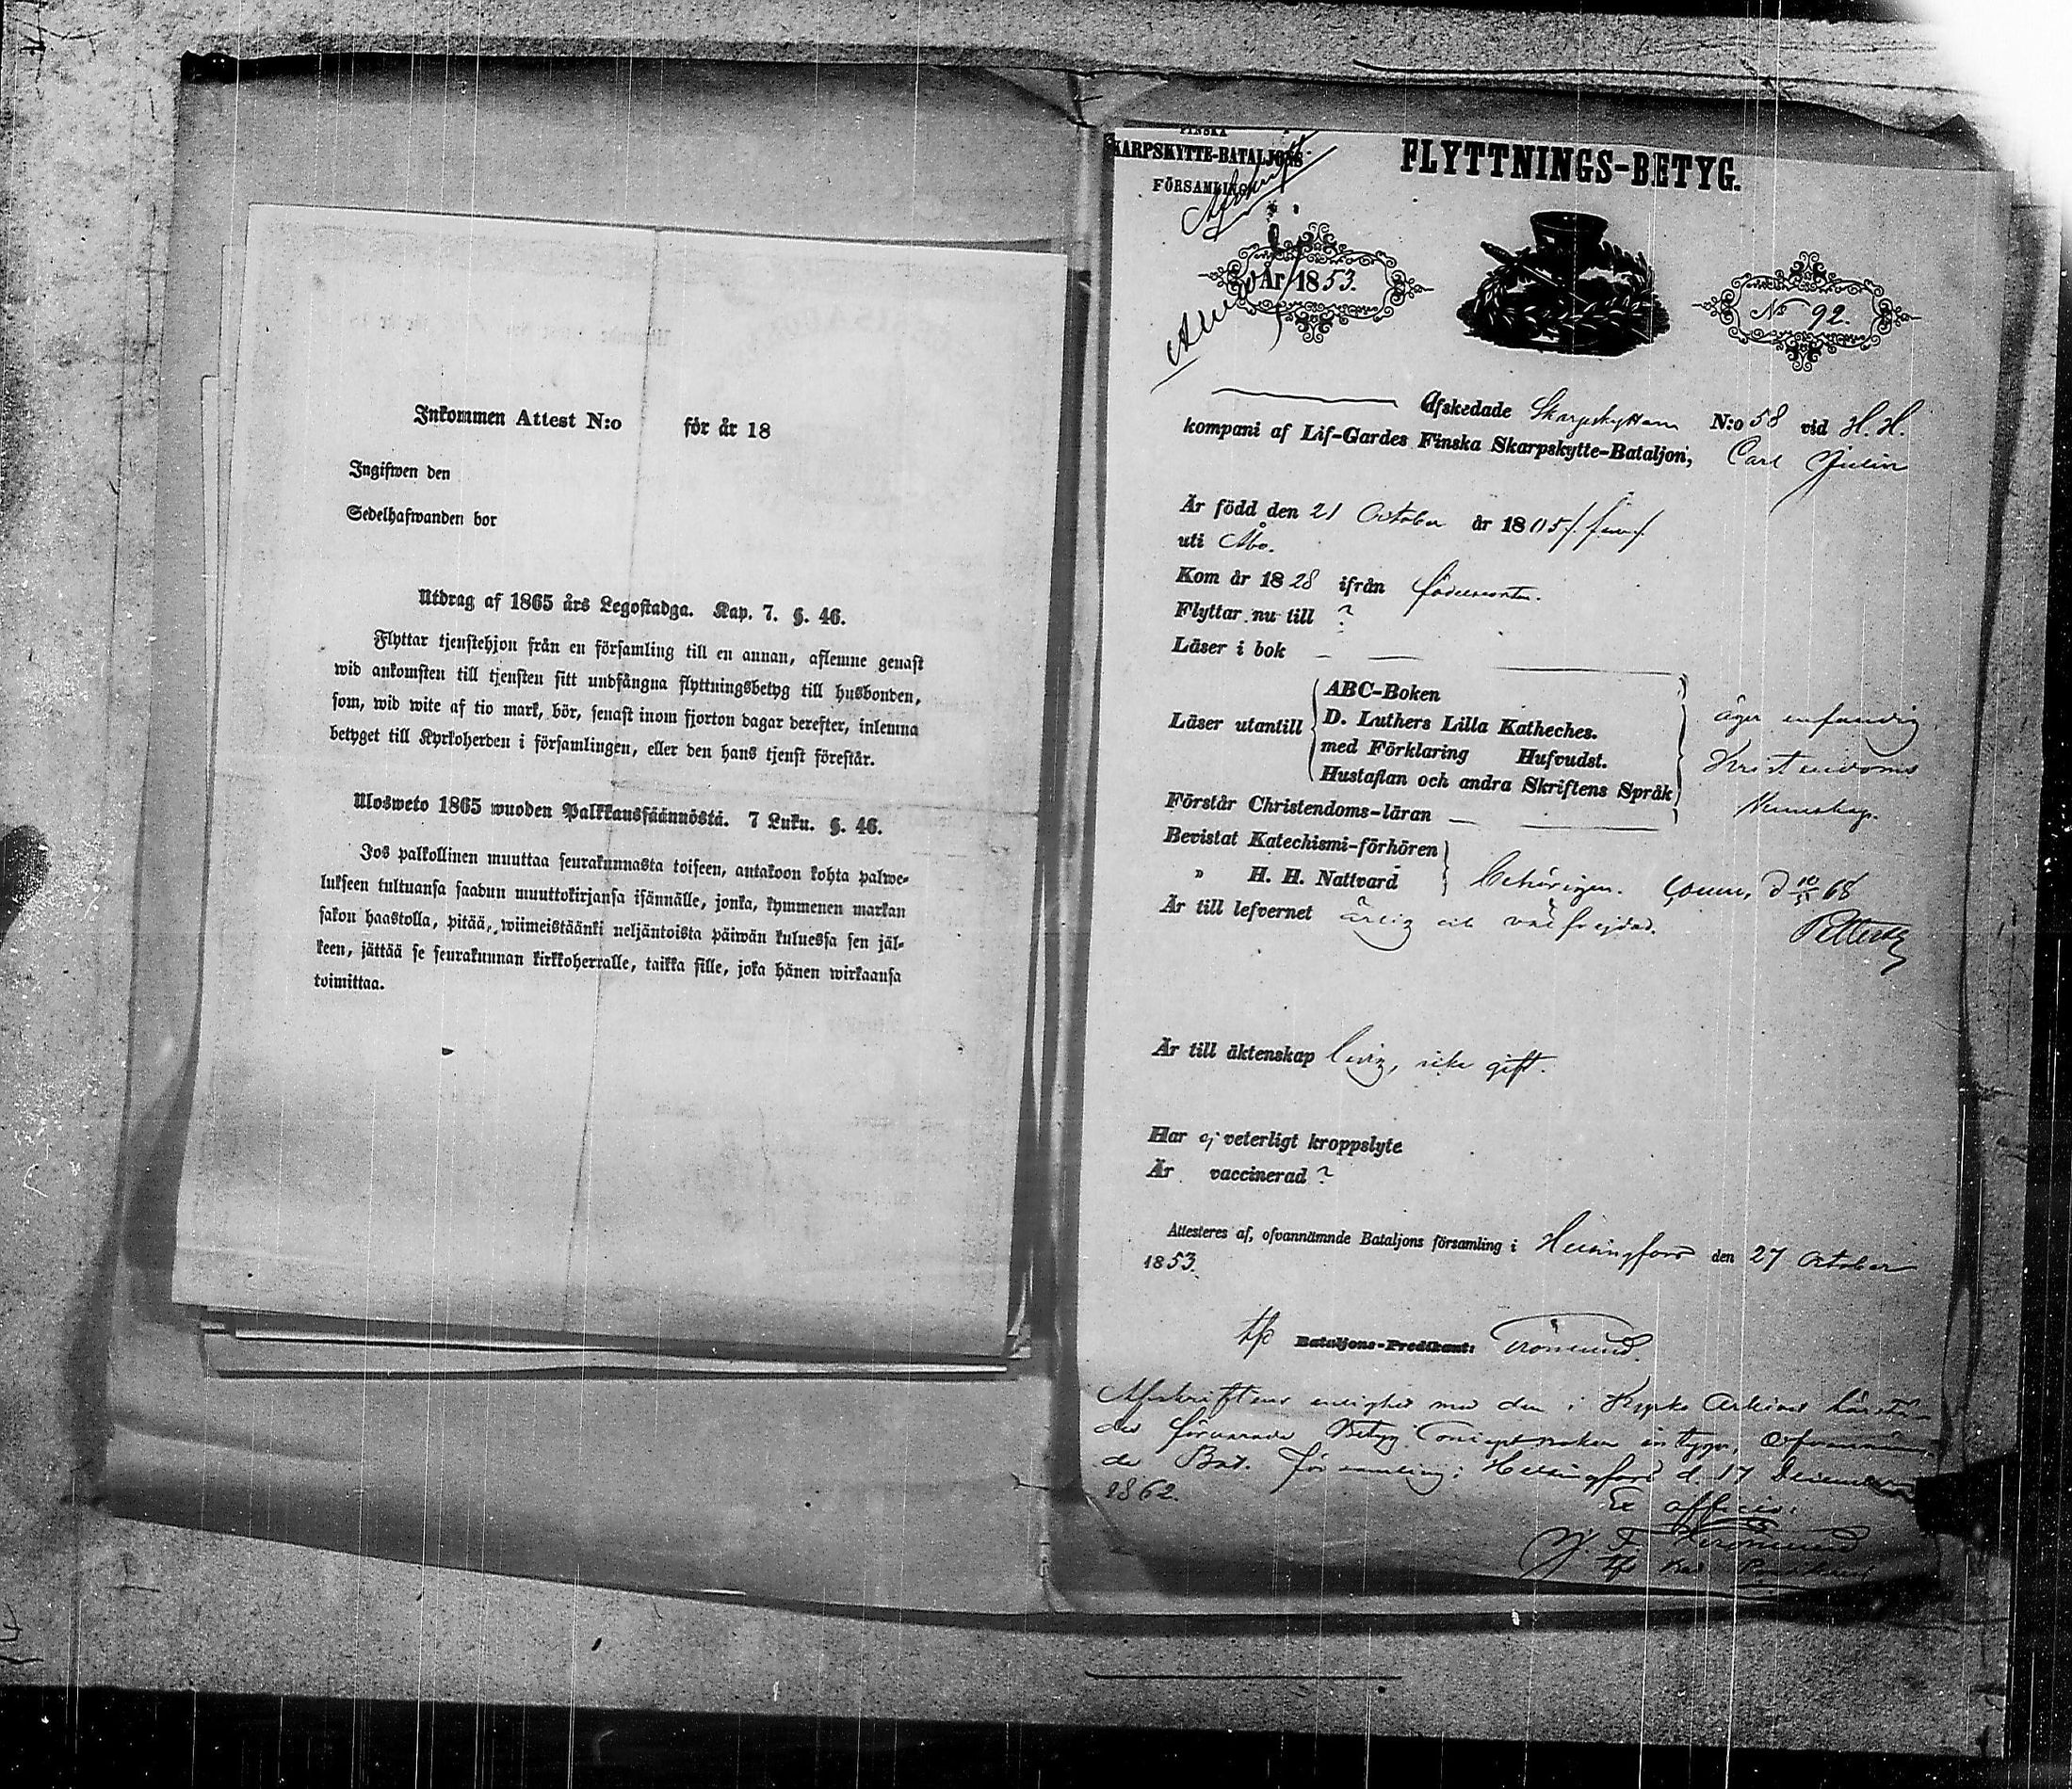 Inkommen Attest N:o för år 18
Ingifwen den
Sedelhafwanden bor
Utdrag af 1865 års Legostadga. Kap. 7. §. 46.
Flyttar tjenstehjon från en församling till en annan, aflemne genast
wid ankomsten till tjensten sitt undfångna flyttningsbetyg till husbonden,
som, wid wite af tio mark, bör, senast inom fjorton dagar derefter, inlemna
betyget till Kyrkoherden i församlingen, eller den hans tjenst förestår.
Ulosweto 1865 wuoden Palkkaussäännöstä. 7 Luku. §. 46.
Jos palkollinen muuttaa seurakunnasta toiseen, antakoon kohta palwe-
lukseen tultuansa saadun muuttokirjansa isännälle, jonka, kymmenen markan
sakon haastolla, pitää, wiimeistäänki neljäntoista päiwän kuluessa sen jäl-
keen, jättää se seurakunnan kirkkoherralle, taikka sille, joka hänen wirkaansa
toimittaa.
FINSKA
SKARPSKYTTE-BATALJONS
FÖRSAMLING
Afskrift.
FLYTTNINGS-BETYG.
År 1853.
No 92.
Afskedade Skarpskytten N:o 58 vid H. H.
kompani af Lif-Gardes Finska Skarpskytte-Bataljon, Carl Julin
Är född den 21 October år 1805 /: fem :/
uti Åbo.
Kom år 1828 ifrån födelseorten.
Flyttar nu till ?
Läser i bok
Läser utantill
ABC-Boken
D. Luthers Lilla Katheches.
med Förklaring Hufvudst.
Hustaflan och andra Skriftens Språk
äger enfaldig
Kristendoms
kunskap.
Förstår Christendoms-läran
Bevistat Katechismi-förhören
" H. H. Nattvard behörigen.
Är till lefvernet ärlig och välfrejdad.
Är till äktenskap ledig, icke gift.
Har ej veterligt kroppslyte
Är vaccinerad ?
Attesteres af, ofvannämnde Bataljons församling i Helsingfors den 27 October
1853.
Bataljons-Predikant:
Afskriftens enlighet med den i Kyrko Arkivet härstä-
des förvarade Betyg Conceptboken intygar, Ofvannämn-
de Bat. församling i Helsingfors d 17 December
1862.
Ex officio: